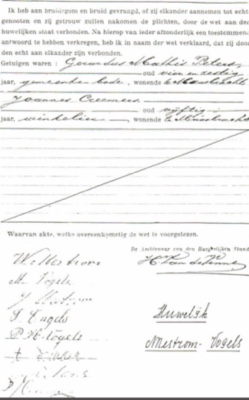 Ik heb aan bruidegom en bruid gevraagd, of zij elkander aannemen tot echt-
genooten en zij getrouw zullen nakomen de plichten, door de wet aan den
huwelijken staat verbonden. Na hierop van ieder afzonderlijk een toestemmend
antwoord te hebben verkregen, heb ik in naam der wet verklaard, dat zij door
den echt aan elkander zijn verbonden.
Getuigen waren: Gerardus Mathis Peters
oud
jaar, gemeente-bode, wonende te
Joannes Creemers
oud vijftig
jaar, winkelier, wonende te
Waarvan akte, welke overeenkomstig de wet is voorgelezen.
De Ambtenaar van den Burgerlijken Stand
W. Mestrom
M. Vogels
J. Mestrom
J. Engels
P. H. Vogels
Huwelijk
Mestrom-Vogels